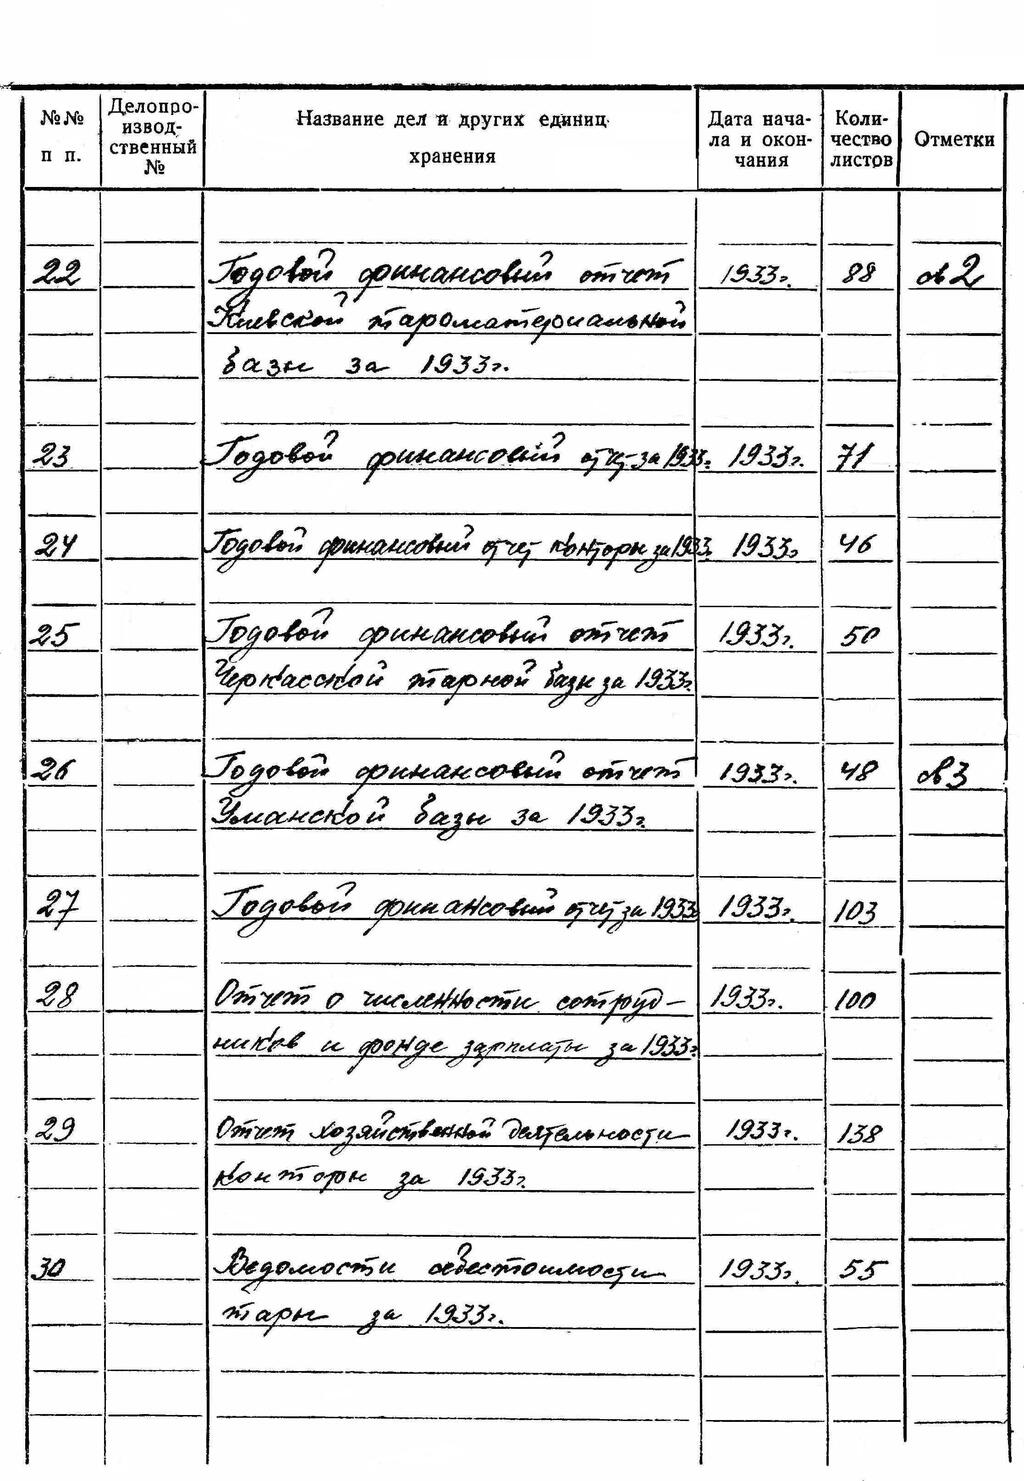 №№ п п.
Делопро-
извод-
ственный
№
Название дел и других единиц
хранения
Дата нача-
ла и окон-
чания
Коли-
чество
листов
Отметки
22 Годовой финансовый отчет 1933г. 88 св 2
Киевской тароматериальной
базы за 1933г.
23 Годовой финансовый отчет за 1933г. 1933г. 71
24 Годовой финансовый отчет конторы за 1933 1933г 46
25 Годовой финансовый отчет 1933г. 50
Черкасской тарной базы за 1933г.
26 Годовой финансовый отчет 1933г. 48 св 3
Уманской базы за 1933г.
27 Годовой финансовый отчет за 1933 1933г. 103
28 Отчет о численности сотруд- 1933г. 100
ников и фонде зарплаты за 1933г
29 Отчет хозяйственной деятельности 1933г. 138
конторы за 1933г.
30 Ведомости себестоимости 1933г. 55
тары за 1933г.